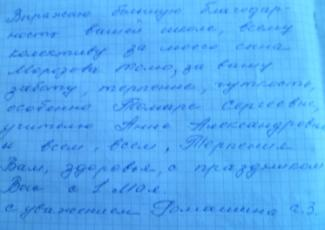 Выражаю большую благодар-
ность вашей школе, всему
колективу за моего сына
Морозова Томо, за вашу
заботу, терпение, чуткость,
особенно Тамаре Сергеевне,
учителю Анне Александровне
и всем, всем, Терпения
Вам, здоровья, с праздником
Вас с 1 Мая.
с уважением Ромашина г.З.